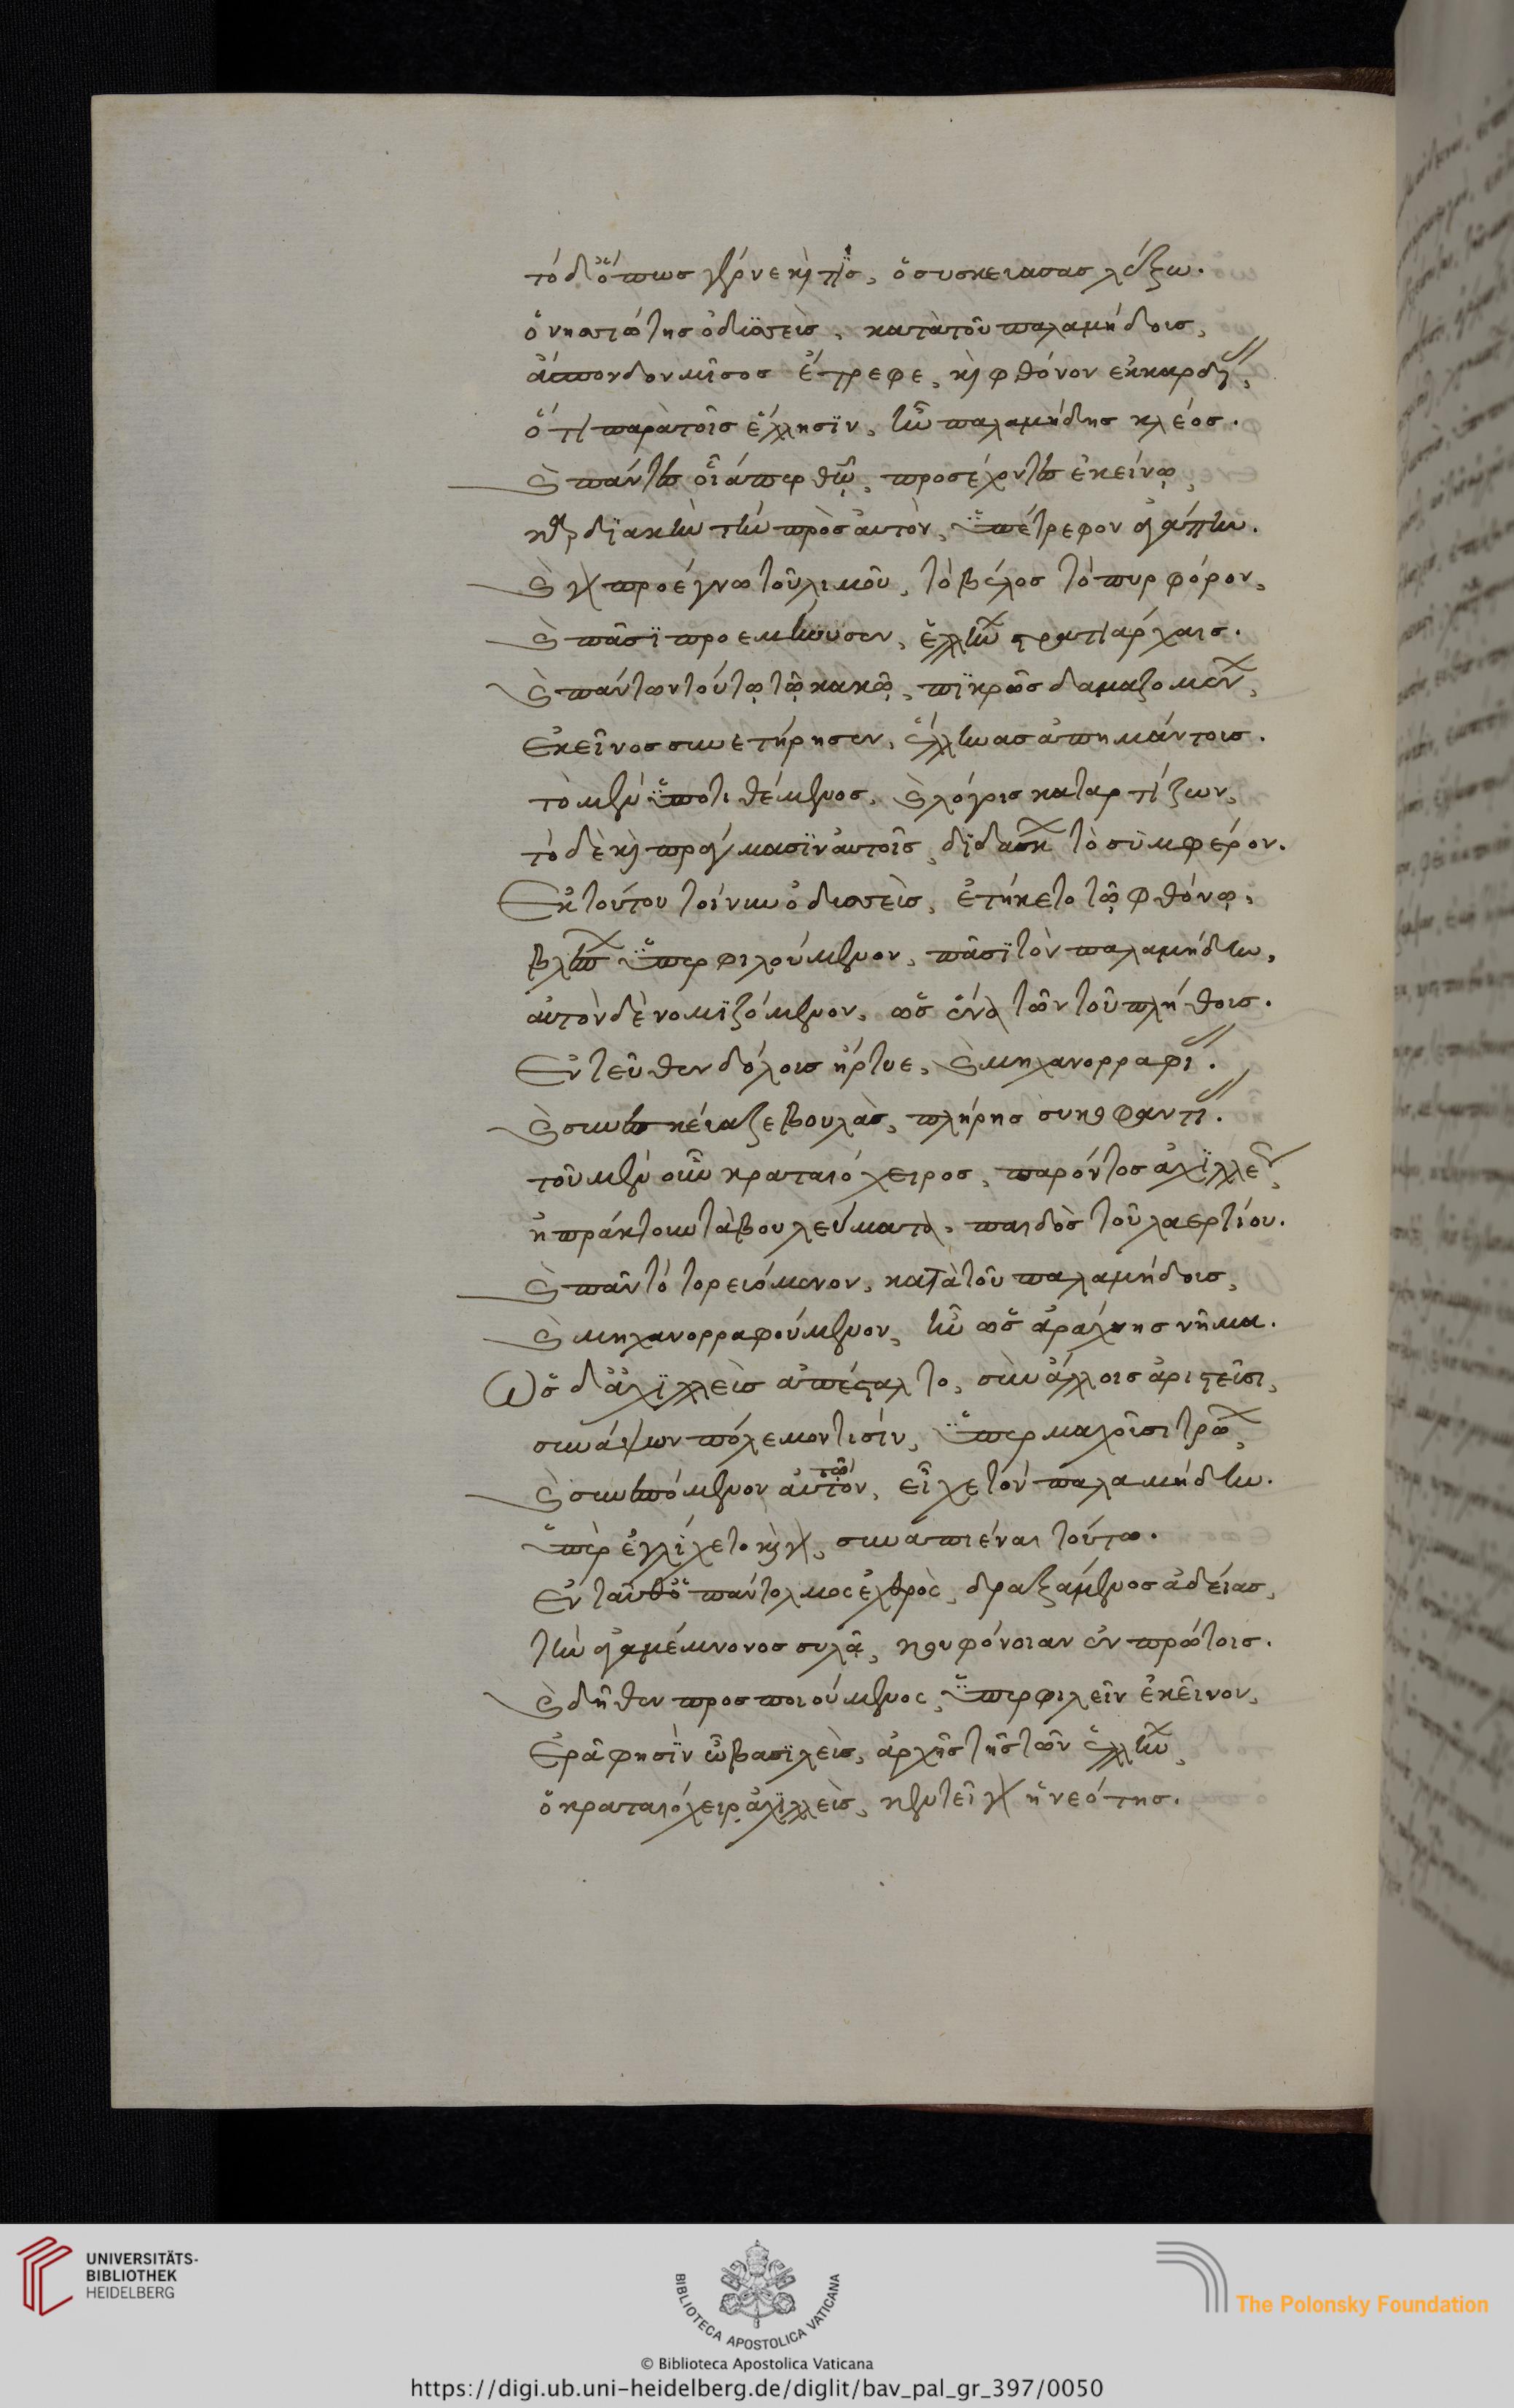 τὸ δ' ὅπως γέγονε καὶ τίς, ὁ συσκευάσας λέξω.
ὁ νησιώτης ὀδυσσεὺς, κατὰ τοῦ παλαμήδους,
ἄσπονδον μῖσος ἔτρεφε, καὶ φθόνον ἐγκαρδίως,
ὅτι παρὰ τοῖς ἕλλησιν, ἦν παλαμήδης κλέος.
καὶ πάντες οἷάπερ θεῷ, προσέχοντες ἐκείνῳ,
καρδιακὴν τὴν πρὸς αὐτὸν, ὑπέτρεφον ἀγάπην.
καὶ γὰρ προέγνω τοῦ λιμοῦ, τὸ βέλος τὸ πυρφόρον,
καὶ πᾶσι προεμήνυσεν, ἑλλήνων στρατιάρχαις.
καὶ πάντων τούτῳ τῷ κακῷ, πικρῶς δαμαζομένων,
ἐκεῖνος συνετήρησεν, ἕλληνας ἀπημάντους.
τὸ μὲν ὑποτιθέμενος, καὶ λόγοις καταρτίζων,
τὸ δὲ καὶ πράγμασιν αὐτοῖς, διδάσκων τὸ συμφέρον.
Ἐκ τούτου τοίνυν ὀδυσσεὺς, ἐτήκετο τῷ φθόνῳ,
βλέπων ὑπερφιλούμενον, πᾶσι τὸν παλαμήδην,
αὐτὸν δὲ νομιζόμενον, ὡς ἕνα τῶν τοῦ πλήθους.
Ἐντεῦθεν δόλους ἤρτυε, καὶ μηχανορραφίας.
καὶ συνεσκεύαζε βουλὰς, πλήρης συκοφαντίας.
τοῦ μὲν οὖν κραταιόχειρος, παρόντος ἀχιλλέως,
ἢ πράκτουν τὰ βουλεύματα, παιδὸς τοῦ λαερτίου.
καὶ πᾶν τὸ τορευόμενον, κατὰ τοῦ παλαμήδους,
καὶ μηχανορραφούμενον, ἦν ὡς ἀράχνης νῆμα.
Ὡς δ' ἀχιλλεὺς ἀπέσταλτο, σὺν ἄλλοις ἀριστεῦσι,
συνάψων πόλεμον τισὶν, ὑπερμαχοῦσι τρώων,
καὶ συνεπόμενον αὐτῷ, εἶχε τὸν παλαμήδην.
ὑπερεγλίχετο καὶ γὰρ, συναπιέναι τούτω.
Ἐνταῦθ' ὁ παντόλμος ἐχθρὸς, δραξάμενος ἀδείας,
τὴν ἀγαμέμνονος συλᾷ, κουφόνοιαν ἐν πρώτοις.
καὶ δῆθεν προσποιούμενος, ὑπερφιλεῖν ἐκεῖνον,
ἐρᾷ φησὶν ὦ βασιλεῦ, ἀρχῆς τῆς τῶν ἑλλήνων,
ὁ κραταιόχειρ ἀχιλλεὺς, κεντεῖ γὰρ ἡ νεότης.
UNIVERSITÄTS-
BIBLIOTHEK
HEIDELBERG
BIBLIOTECA APOSTOLICA VATICANA
The Polonsky Foundation
© Biblioteca Apostolica Vaticana
https://digi.ub.uni-heidelberg.de/diglit/bav_pal_gr_397/0050